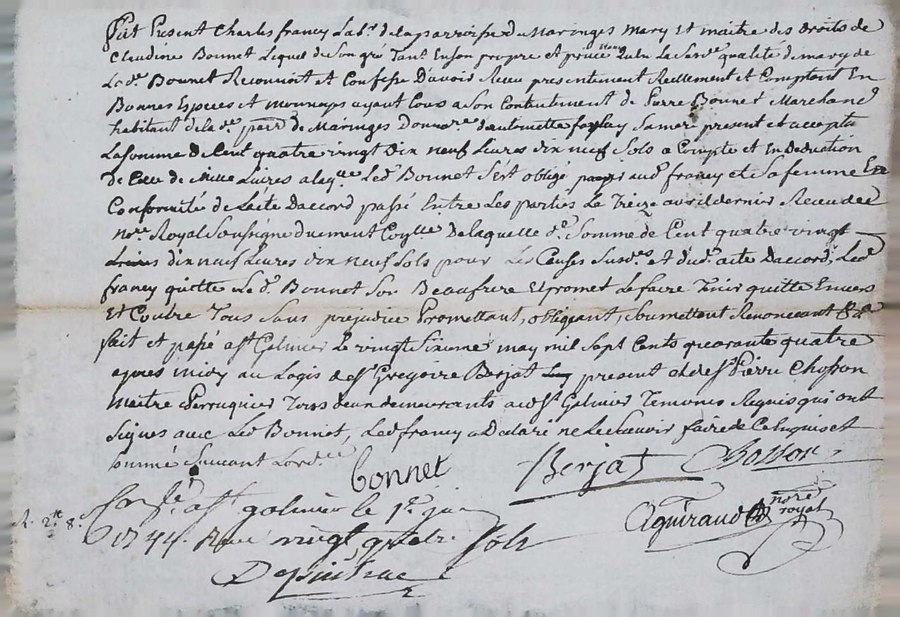 Fut Present Charles francy Lab.r de la parroisse de Maringes Mary et maitre des droits de
Claudine Bonnet Lequel de Son gré Tant En son propre et privé nom qu'En La Sus.de qualité de mary de
La d.e Bonnet Reconnoit et Confesse D'avoir Receu presentement Reellement et Comptant En
Bonnes Especes et monnoyes ayant Cours a Son Contentement de Pierre Bonnet Marchand
habitant de la d.e parr.e de Maringes Donnat.re d'antoinette Sa mere present et accepte
La Somme de Cent quatre vingt Dix neuf Livres dix neuf Sols a Compte et En Deduction
De Celle de Mille Livres a laq.lle Led. Bonnet S'est obligé aud. francy et Sa femme En
Conformité de Lacte Daccord passé Entre Les parties Le Treize avril dernier Receu de
no.re Royal Soussigné De laquelle d.e Somme de Cent quatre vingt
dix neuf Livres dix neuf Sols pour Les Causes Susd.es et dud. acte Daccord, Led.
francy quitte Le d. Bonnet Son Beaufrere Et promet Le faire Tenir quitte Envers
Et Contre Tous Sans prejudice Promettant, obligeant, Soumettant Renonceant &a
fait et passé a S.t Galmier Le vingt Sixieme may mil Sept Cents quarante quatre
apres midy au Logis de S.r Gregoire Berjat present et de S.r Pierre Chosson
Maitre Perruquier Tous deux demeurants aud. S.t Galmier Temoins Requis qui ont
Signés avec Led. Bonnet, Led. francy a Declaré ne Le Scavoir faire de Ce Enquis et
Sommé Suivant Lord.ce
Bonnet Berjat Chosson
Con.lé a S.t galmier le 1.er juin
R. 2.tt 8.s
1744. Receu vingt quatre Sols
Aguiraud no.re royal